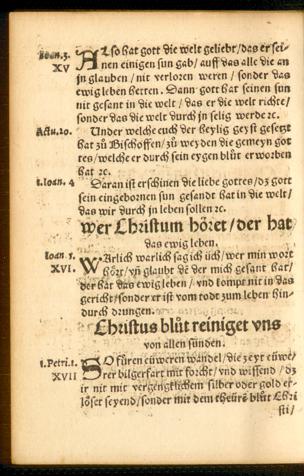 Joan.3.
XV
Also hat gott die welt geliebt/das er sei-
nen einigen sun gab/auff das alle die an
jn glauben/nit verloren weren/sonder das
ewig leben hetten. Dann gott hat seinen sun
nit gesant in die welt/das er die welt richte/
sonder das die welt durch jn selig werde ꝛc.
Actu.20.
Under welche euch der heylig geyst gesetzt
hat zů Bischoffen/zů weyden die gemeyn got
tes/welche er durch sein eygen blůt erworben
hat ꝛc.
1.Ioan. 4
Daran ist erschinen die liebe gottes/dz gott
sein eingebornen sun gesandt hat in die welt/
das wir durch jn leben sollen ꝛc.
wer Christum höret/der hat
das ewig leben.
Ioan 5.
XVI.
WArlich warlich sag ich üch/wer min wort
hört/vn̄ glaubt dē der mich gesant hat/
der hat das ewig leben/vnd kompt nit in das
gericht/sonder er ist vom todt zum leben hin-
durch drungen.
Christus blůt reiniget vns
von allen sünden.
1.Petri.1.
XVII
SO füren eüweren wandel/die zeyt eüwe-
rer bilgerfart mit forcht/vnd wissend/dz
ir nit mit vergengklichem silber oder gold er-
löset seyend/sonder mit dem theürē blůt Chri
sti/